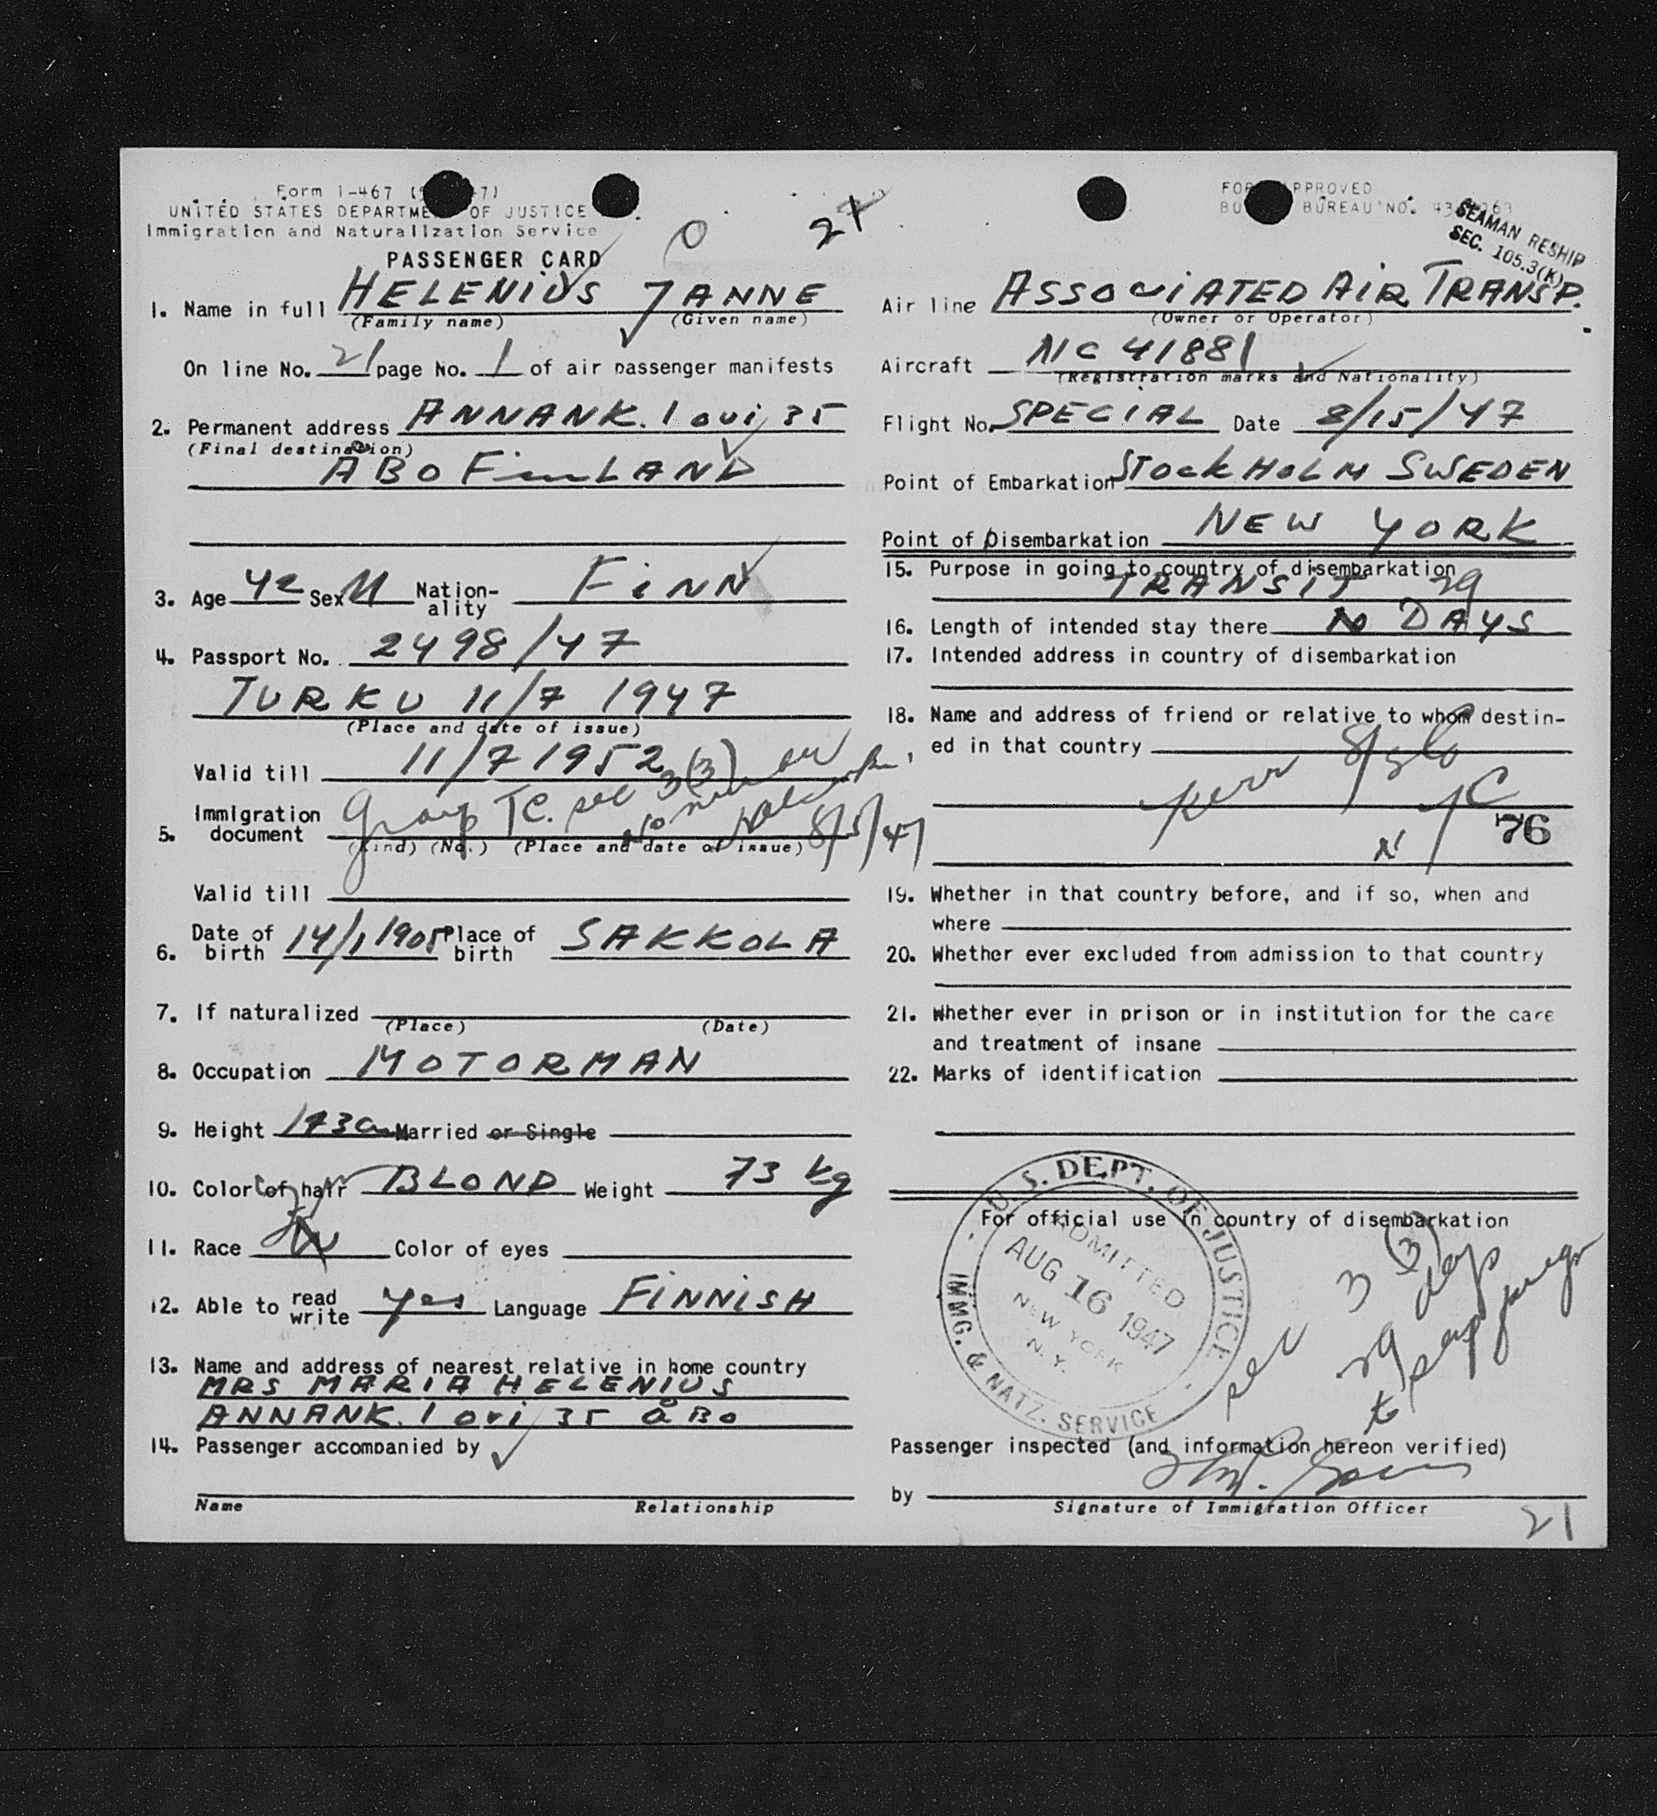 Form I-467
UNITED STATES DEPARTMENT OF JUSTICE
Immigration and Naturalization Service
PASSENGER CARD
1. Name in full HELENIUS JANNE
(Family name) (Given name)
On line No. 21 page No. 1 of air passenger manifests
2. Permanent address ANNANK. 1 ovi 35
(Final destination)
ÅBO FinLAND
3. Age 42 Sex M Nation-ality FiNN
4. Passport No. 2498/47
TURKU 11/7 1947
(Place and date of issue)
Valid till 11/7 1952
5. Immigration document group TC. sec 3(3)
8/5/47
(Kind) (No.) (Place and date of issue)
Valid till
6. Date of birth 14/1 1905 Place of birth SAKKOLA
7. If naturalized
(Place) (Date)
8. Occupation MOTORMAN
9. Height 173 cm Married or Single
10. Color of hair BLOND Weight 73 kg
11. Race Color of eyes
12. Able to read write yes Language FiNNiSH
13. Name and address of nearest relative in home country
MRS MARIA HELENIUS
ANNANK. 1 ovi 35 ÅBO
14. Passenger accompanied by
Name Relationship
FORM APPROVED
BUREAU NO.
SEAMAN RESHIP
SEC. 105.3(K)
Air line ASSOCiATED AiR TRANSP.
(Owner or Operator)
Aircraft NC 41881
(Registration marks and Nationality)
Flight No. SPECiAL Date 8/15/47
Point of Embarkation STockHOLM SWEDEN
Point of Disembarkation NEW YORK
15. Purpose in going to country of disembarkation
TRANSIT
16. Length of intended stay there 29 DAYS
17. Intended address in country of disembarkation
18. Name and address of friend or relative to whom destin-
ed in that country
NYC
76
19. Whether in that country before, and if so, when and
where
20. Whether ever excluded from admission to that country
21. Whether ever in prison or in institution for the care
and treatment of insane
22. Marks of identification
For official use in country of disembarkation
U. S. DEPT. OF JUSTICE
ADMITTED
AUG 16 1947
NEW YORK
N.Y.
IMMG. & NATZ. SERVICE
sec 3 (3)
29 days
Passenger inspected (and information hereon verified)
by
Signature of Immigration Officer
21